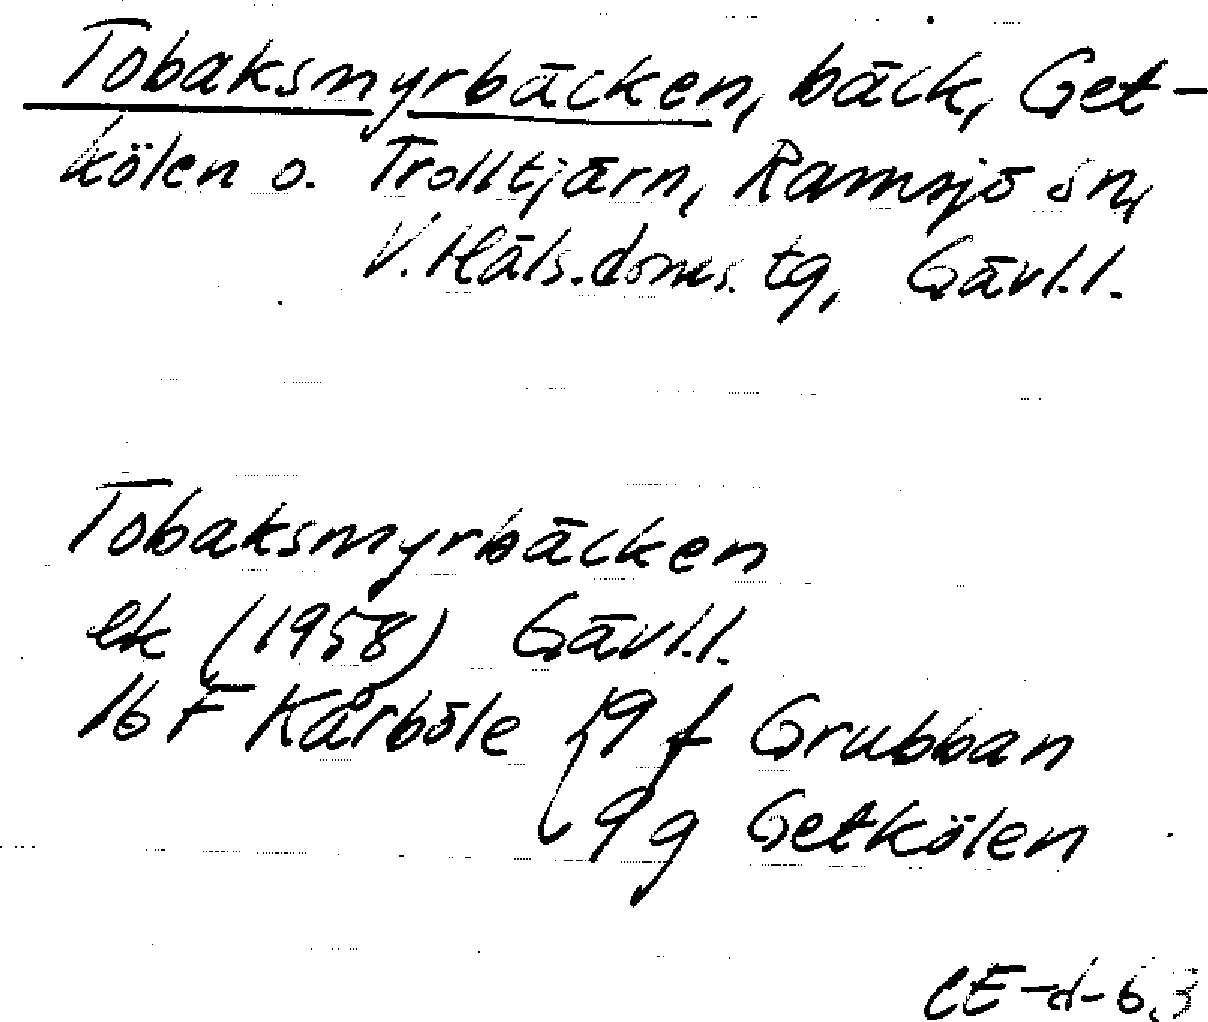 Tobaksmyrbäcken, bäck, Get-
kölen o. Trolltjärn, Ramsjö sn,
V. Häls. doms. tg, Gävl.l.
Tobaksmyrbäcken
ek (1958) Gävl.l.
16 F Kårböle { 9 f Grubban
9 g Getkölen
CE-d-6.3